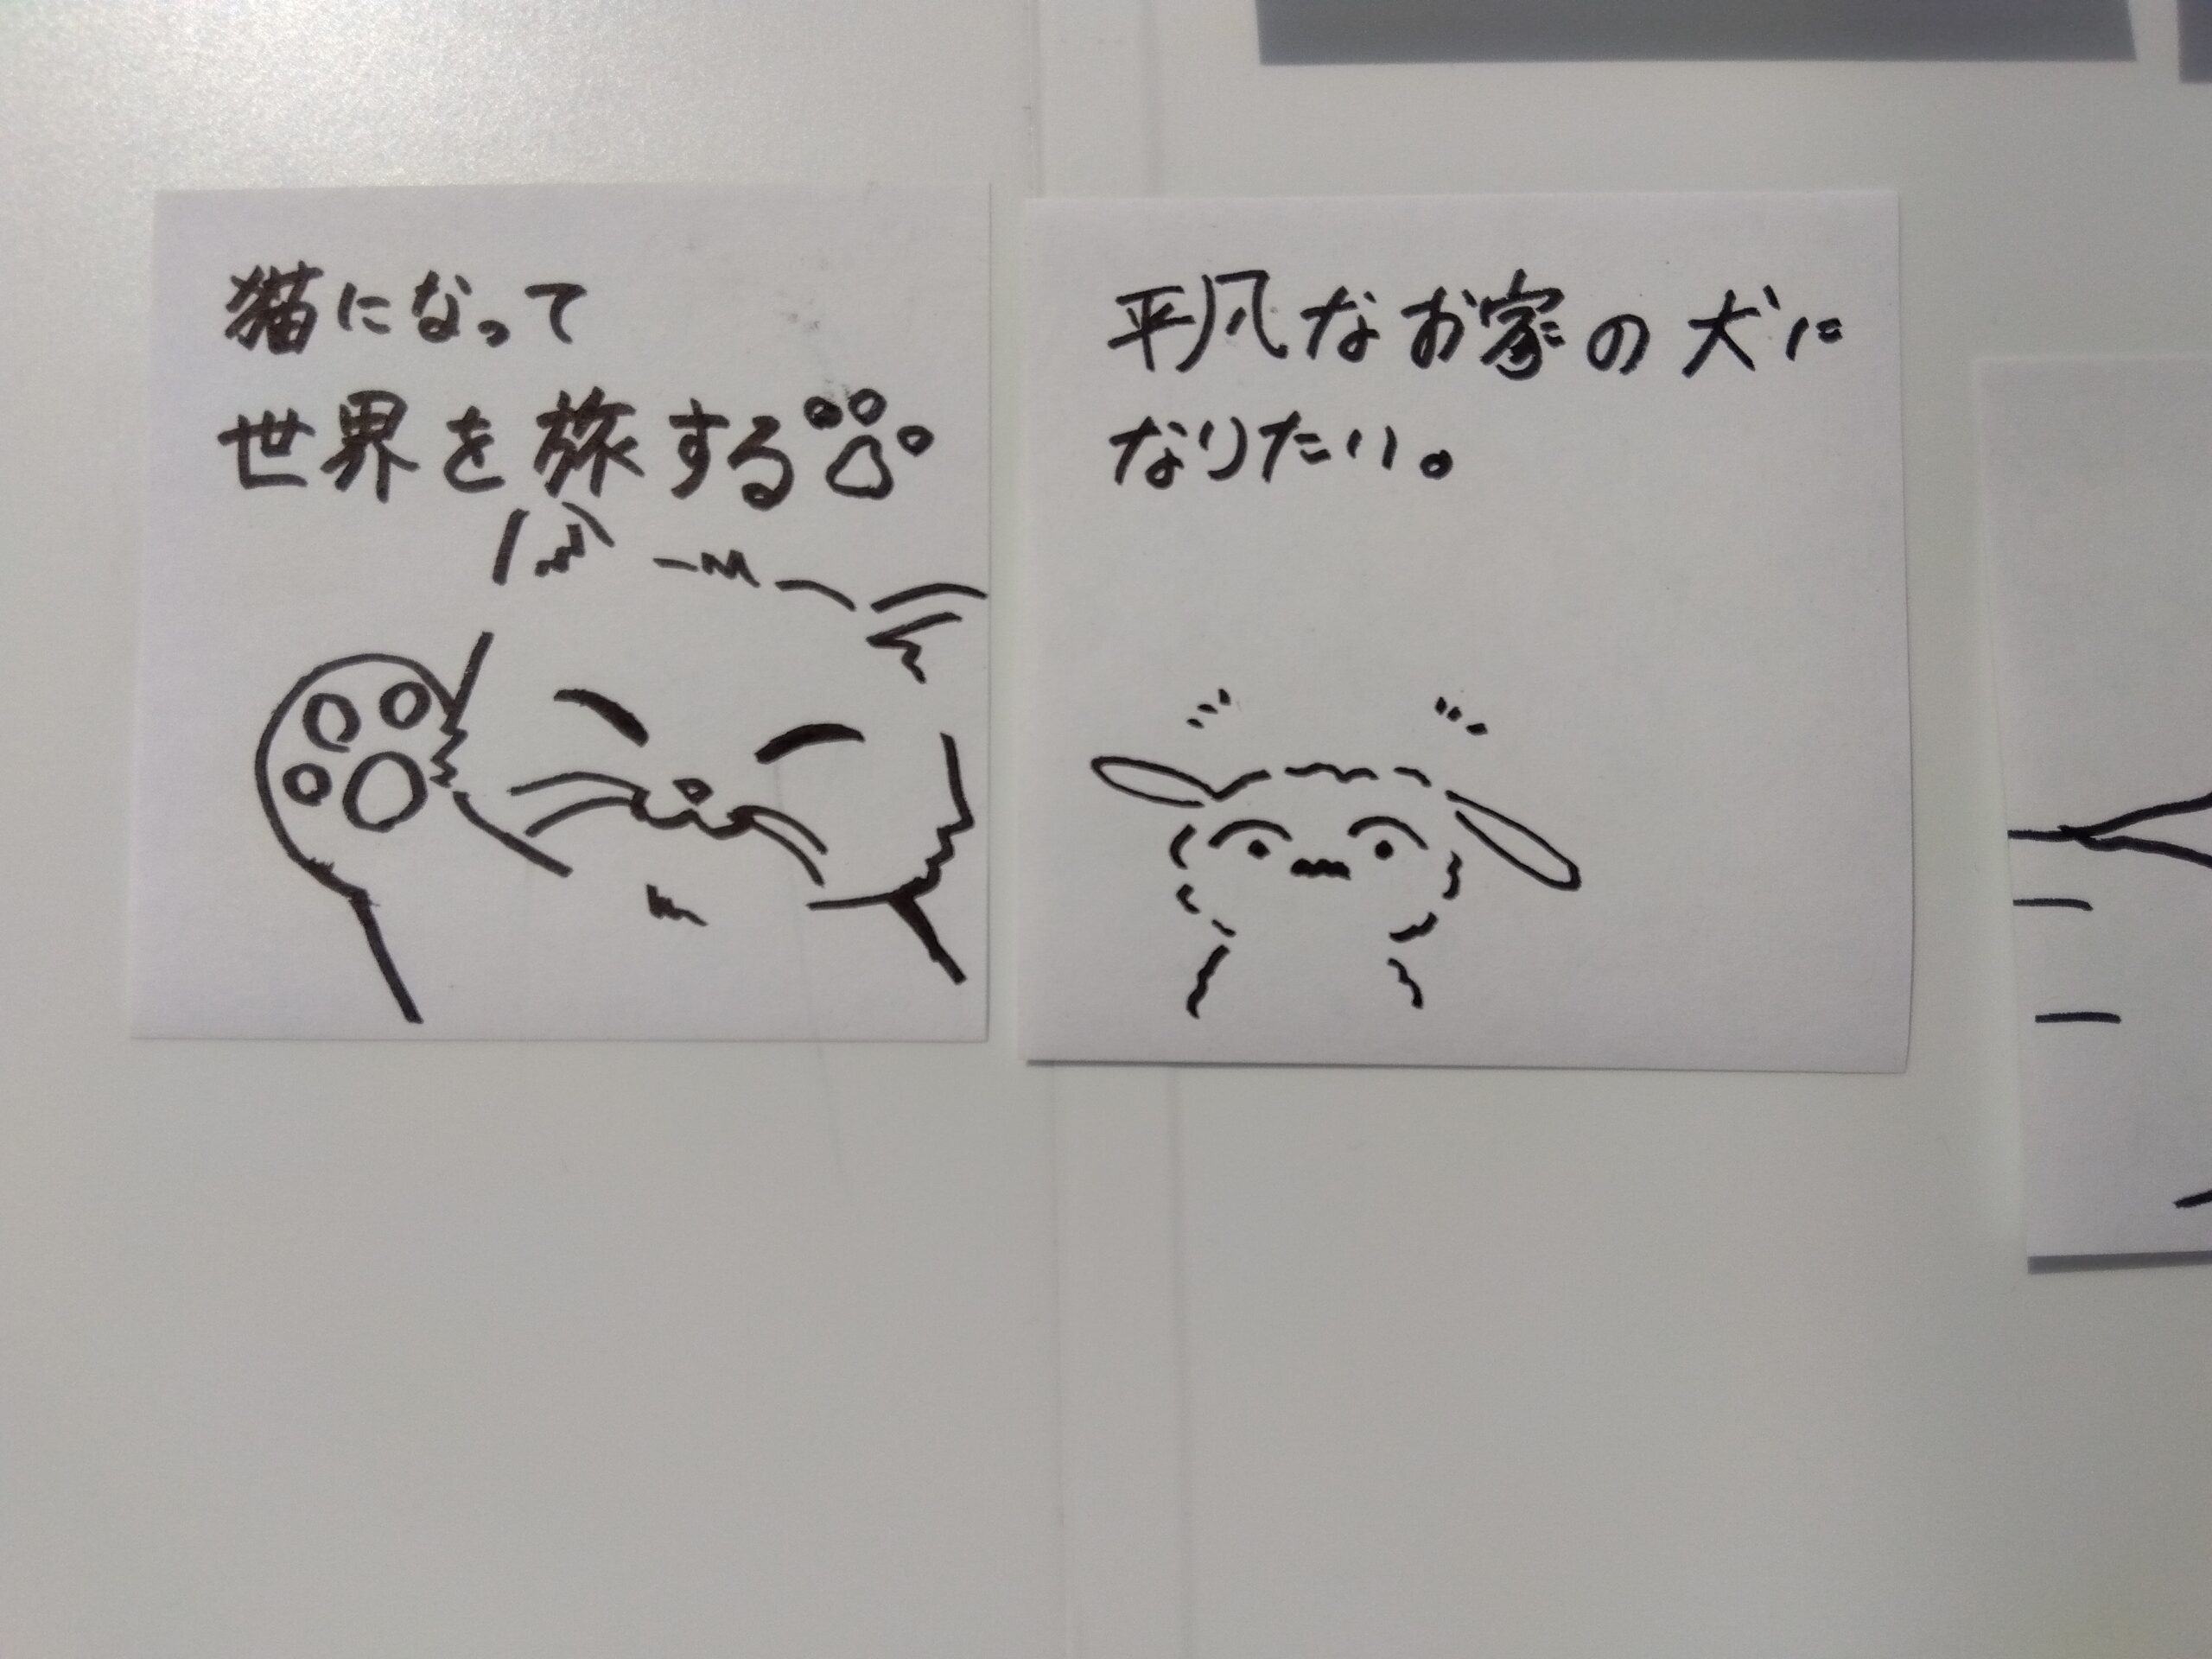 猫になって
世界を旅する
平凡なお家の犬に
なりたい。